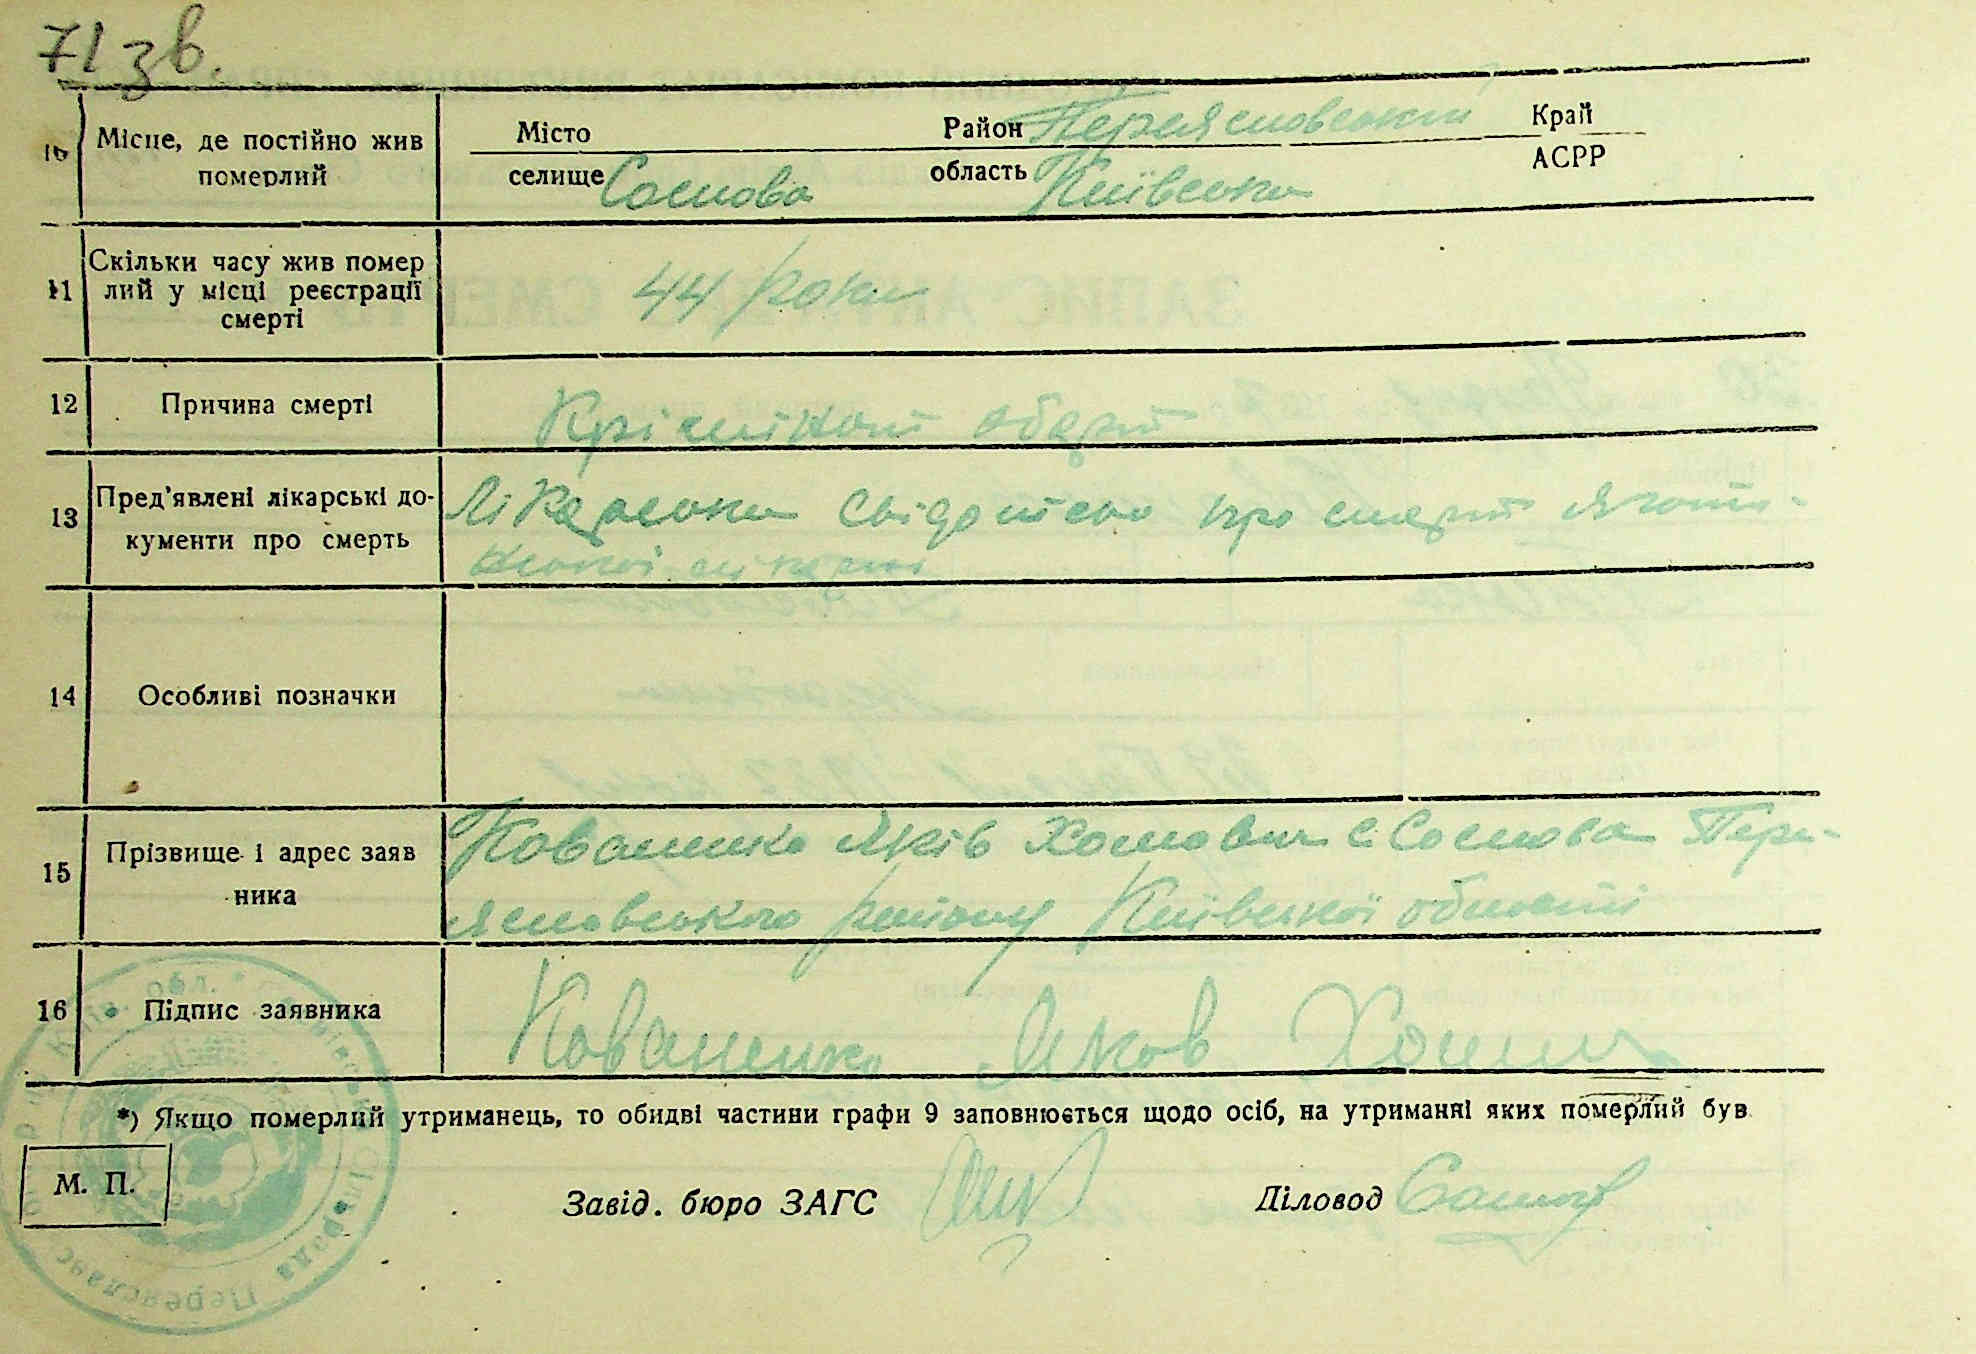 71 зв.
10 Місце, де постійно жив померлий
Місто Район Переяславський Край
селище Соснова область Київська АСРР
11 Скільки часу жив помер
лий у місці реєстрації
смерті
44 роки
12 Причина смерті
13 Пред'явлені лікарські до-
кументи про смерть
Лікарське свідоцтво про смерт Яготи-
14 Особливі позначки
15 Прізвище і адрес заяв
ника
Коваленко Яків Хомович с. Соснова Пере-
яславського району Київської області
16 Підпис заявника
Коваленко Яков Хомич
*) Якщо померлий утриманець, то обидві частини графи 9 заповнюється щодо осіб, на утриманні яких померлий був
М. П.
Завід. бюро ЗАГС
Діловод
Переяславс